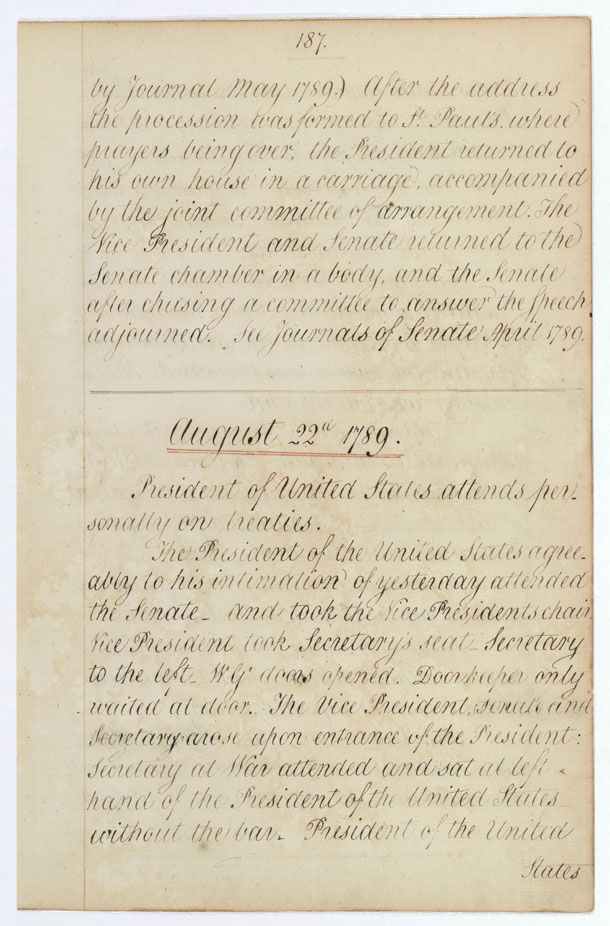 187.
by Journal May 1789.) After the address
the procession was formed to St. Paul's. where
prayers being over, the President returned to
his own house in a carriage, accompanied
by the joint committee of arrangement. The
Vice President and Senate returned to the
Senate chamber in a body, and the Senate
after chusing a committee to answer the speech
adjourned. See Journals of Senate April 1789.
August 22d 1789.
President of United States attends per-
sonally on treaties.
The President of the United States agree-
ably to his intimation of yesterday attended
the Senate_ and took the Vice Presidents chair
Vice President took Secretary's seat_ Secretary
to the left_ doors opened. Doorkeeper only
waited at door. The Vice President, senate and
Secretary arose upon entrance of the President:
Secretary at War attended and sat at left
hand of the President of the United States_
without the bar_ President of the United
States